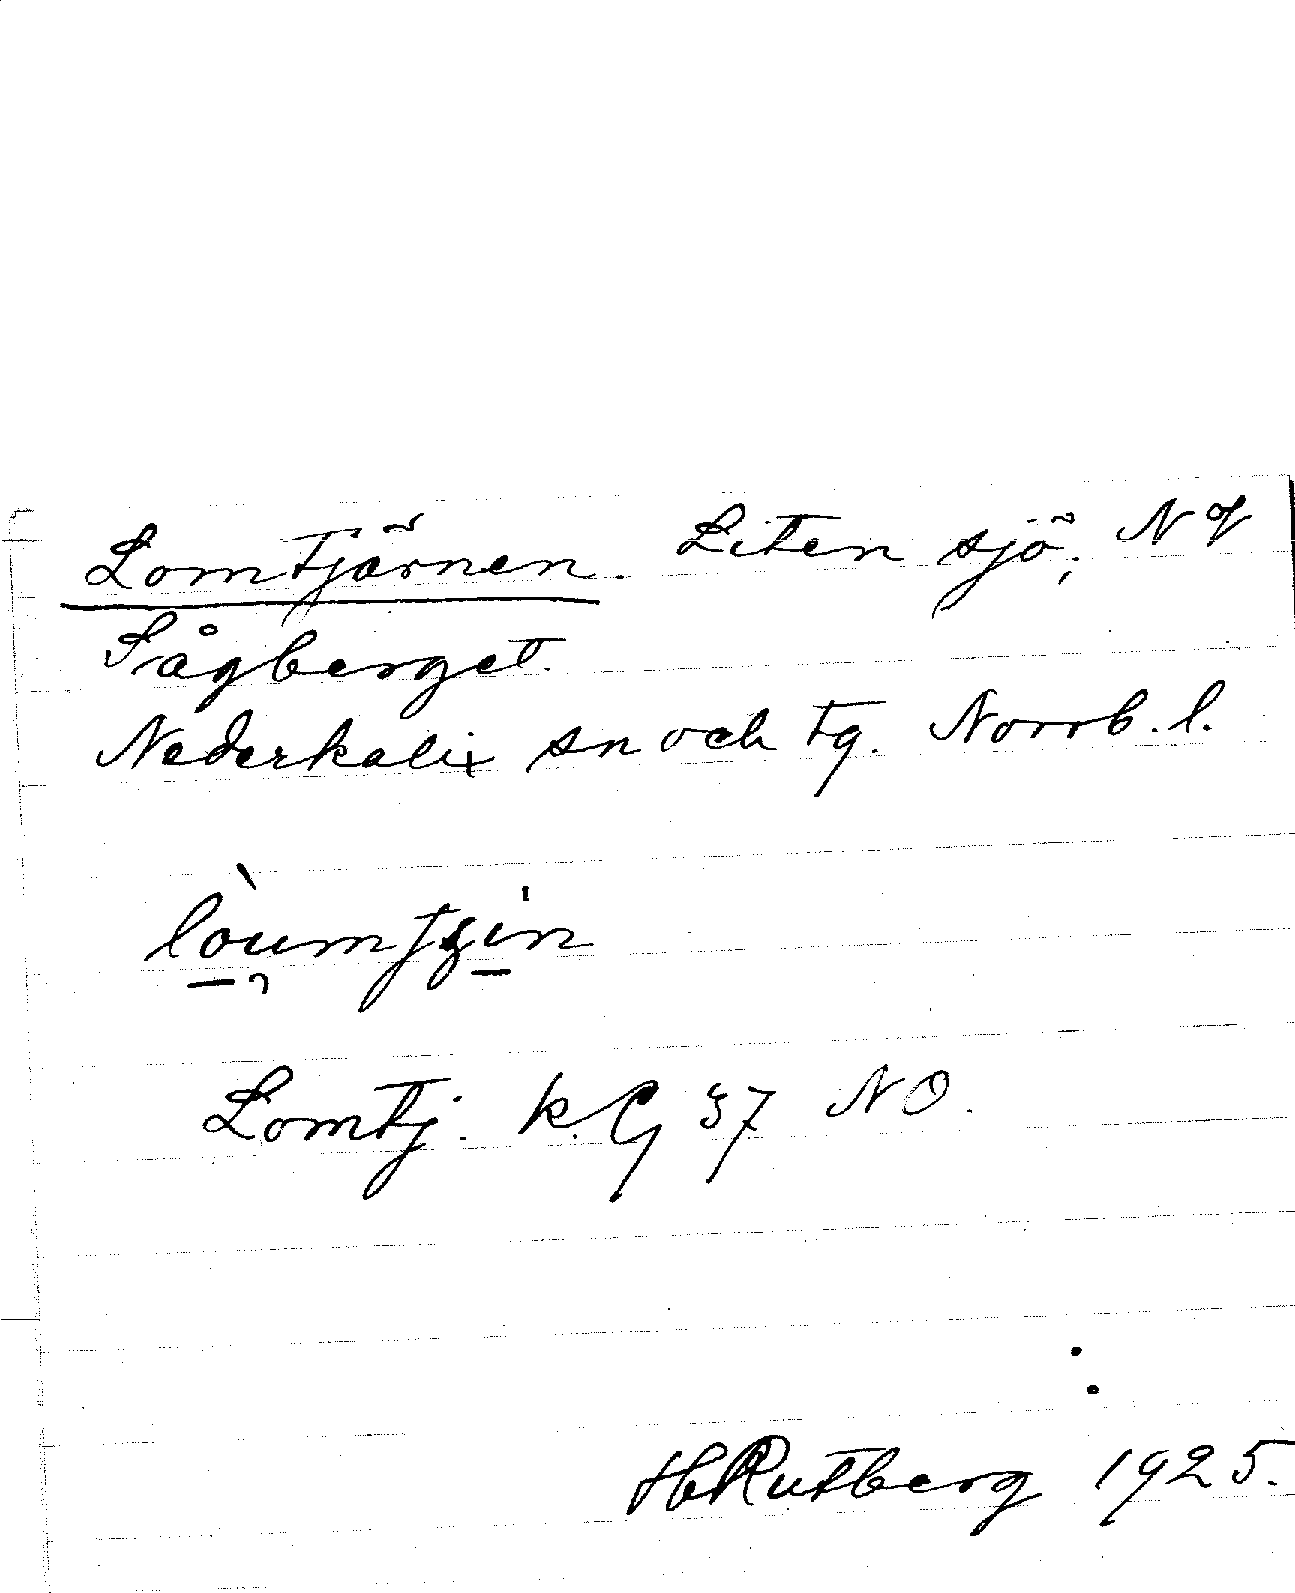 Lomtjärnen. Liten sjö; N of
Sågberget.
Nederkalix sn och tg. Norrb. l.
Lomtj. k. G 37 NO.
H Rutberg 1925.